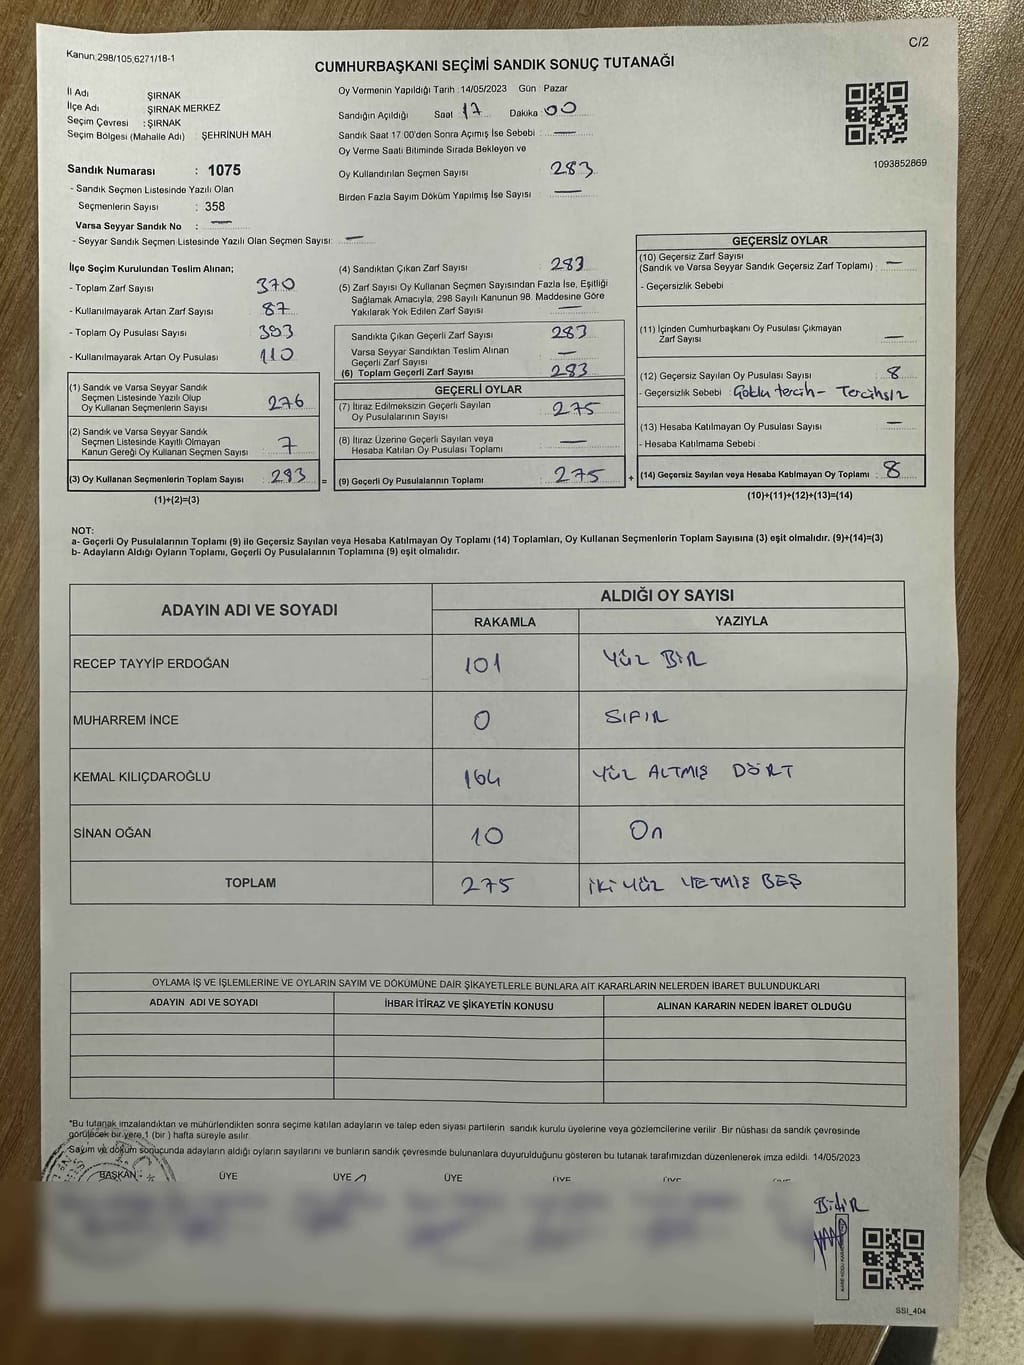 Kanun:298/105,6271/18-1
C/2
CUMHURBAŞKANI SEÇİMİ SANDIK SONUÇ TUTANAĞI
İl Adı ŞIRNAK
İlçe Adı ŞIRNAK MERKEZ
Seçim Çevresi : ŞIRNAK
Seçim Bölgesi (Mahalle Adı) : ŞEHRİNUH MAH
Sandık Numarası : 1075
- Sandık Seçmen Listesinde Yazılı Olan
Seçmenlerin Sayısı : 358
Varsa Seyyar Sandık No : —
- Seyyar Sandık Seçmen Listesinde Yazılı Olan Seçmen Sayısı: —
Oy Vermenin Yapıldığı Tarih : 14/05/2023 Gün : Pazar
Sandığın Açıldığı Saat : 17 Dakika : 00
Sandık Saat 17:00'den Sonra Açımış İse Sebebi : —
Oy Verme Saati Bitiminde Sırada Bekleyen ve
Oy Kullandırılan Seçmen Sayısı 283
Birden Fazla Sayım Döküm Yapılmış İse Sayısı : —
1093852869
İlçe Seçim Kurulundan Teslim Alınan;
- Toplam Zarf Sayısı : 370
- Kullanılmayarak Artan Zarf Sayısı : 87
- Toplam Oy Pusulası Sayısı : 393
- Kullanılmayarak Artan Oy Pusulası : 110
(1) Sandık ve Varsa Seyyar Sandık
Seçmen Listesinde Yazılı Olup
Oy Kullanan Seçmenlerin Sayısı : 276
(2) Sandık ve Varsa Seyyar Sandık
Seçmen Listesinde Kayıtlı Olmayan
Kanun Gereği Oy Kullanan Seçmen Sayısı : 7
(3) Oy Kullanan Seçmenlerin Toplam Sayısı : 283 =
(1)+(2)=(3)
(4) Sandıktan Çıkan Zarf Sayısı : 283
(5) Zarf Sayısı Oy Kullanan Seçmen Sayısından Fazla İse, Eşitliği
Sağlamak Amacıyla, 298 Sayılı Kanunun 98. Maddesine Göre
Yakılarak Yok Edilen Zarf Sayısı : —
Sandıkta Çıkan Geçerli Zarf Sayısı : 283
Varsa Seyyar Sandıktan Teslim Alınan
Geçerli Zarf Sayısı : —
(6) Toplam Geçerli Zarf Sayısı : 283
GEÇERLİ OYLAR
(7) İtiraz Edilmeksizin Geçerli Sayılan
Oy Pusulalarının Sayısı : 275
(8) İtiraz Üzerine Geçerli Sayılan veya
Hesaba Katılan Oy Pusulası Toplamı : —
(9) Geçerli Oy Pusulalarının Toplamı : 275 +
GEÇERSİZ OYLAR
(10) Geçersiz Zarf Sayısı
(Sandık ve Varsa Seyyar Sandık Geçersiz Zarf Toplamı) : —
- Geçersizlik Sebebi
(11) İçinden Cumhurbaşkanı Oy Pusulası Çıkmayan
Zarf Sayısı : —
(12) Geçersiz Sayılan Oy Pusulası Sayısı : 8
- Geçersizlik Sebebi : Çoklu tercih - Tercihsiz
(13) Hesaba Katılmayan Oy Pusulası Sayısı : —
- Hesaba Katılmama Sebebi :
(14) Geçersiz Sayılan veya Hesaba Katılmayan Oy Toplamı : 8
(10)+(11)+(12)+(13)=(14)
NOT:
a- Geçerli Oy Pusulalarının Toplamı (9) ile Geçersiz Sayılan veya Hesaba Katılmayan Oy Toplamı (14) Toplamları, Oy Kullanan Seçmenlerin Toplam Sayısına (3) eşit olmalıdır. (9)+(14)=(3)
b- Adayların Aldığı Oyların Toplamı, Geçerli Oy Pusulalarının Toplamına (9) eşit olmalıdır.
ADAYIN ADI VE SOYADI ALDIĞI OY SAYISI
RAKAMLA YAZIYLA
RECEP TAYYİP ERDOĞAN 101 YÜZ BİR
MUHARREM İNCE 0 SIFIR
KEMAL KILIÇDAROĞLU 164 YÜZ ALTMIŞ DÖRT
SİNAN OĞAN 10 On
TOPLAM 275 İKİ YÜZ YETMİŞ BEŞ
OYLAMA İŞ VE İŞLEMLERİNE VE OYLARIN SAYIM VE DÖKÜMÜNE DAİR ŞİKAYETLERLE BUNLARA AİT KARARLARIN NELERDEN İBARET BULUNDUKLARI
ADAYIN ADI VE SOYADI İHBAR İTİRAZ VE ŞİKAYETİN KONUSU ALINAN KARARIN NEDEN İBARET OLDUĞU
*Bu tutanak imzalandıktan ve mühürlendikten sonra seçime katılan adayların ve talep eden siyasi partilerin sandık kurulu üyelerine veya gözlemcilerine verilir .Bir nüshası da sandık çevresinde
görülecek bir yere 1 (bir ) hafta süreyle asılır.
Sayım ve döküm sonucunda adayların aldığı oyların sayılarını ve bunların sandık çevresinde bulunanlara duyurulduğunu gösteren bu tutanak tarafımızdan düzenlenerek imza edildi. 14/05/2023
BAŞKAN ÜYE ÜYE ÜYE ÜYE ÜYE
SSI_404